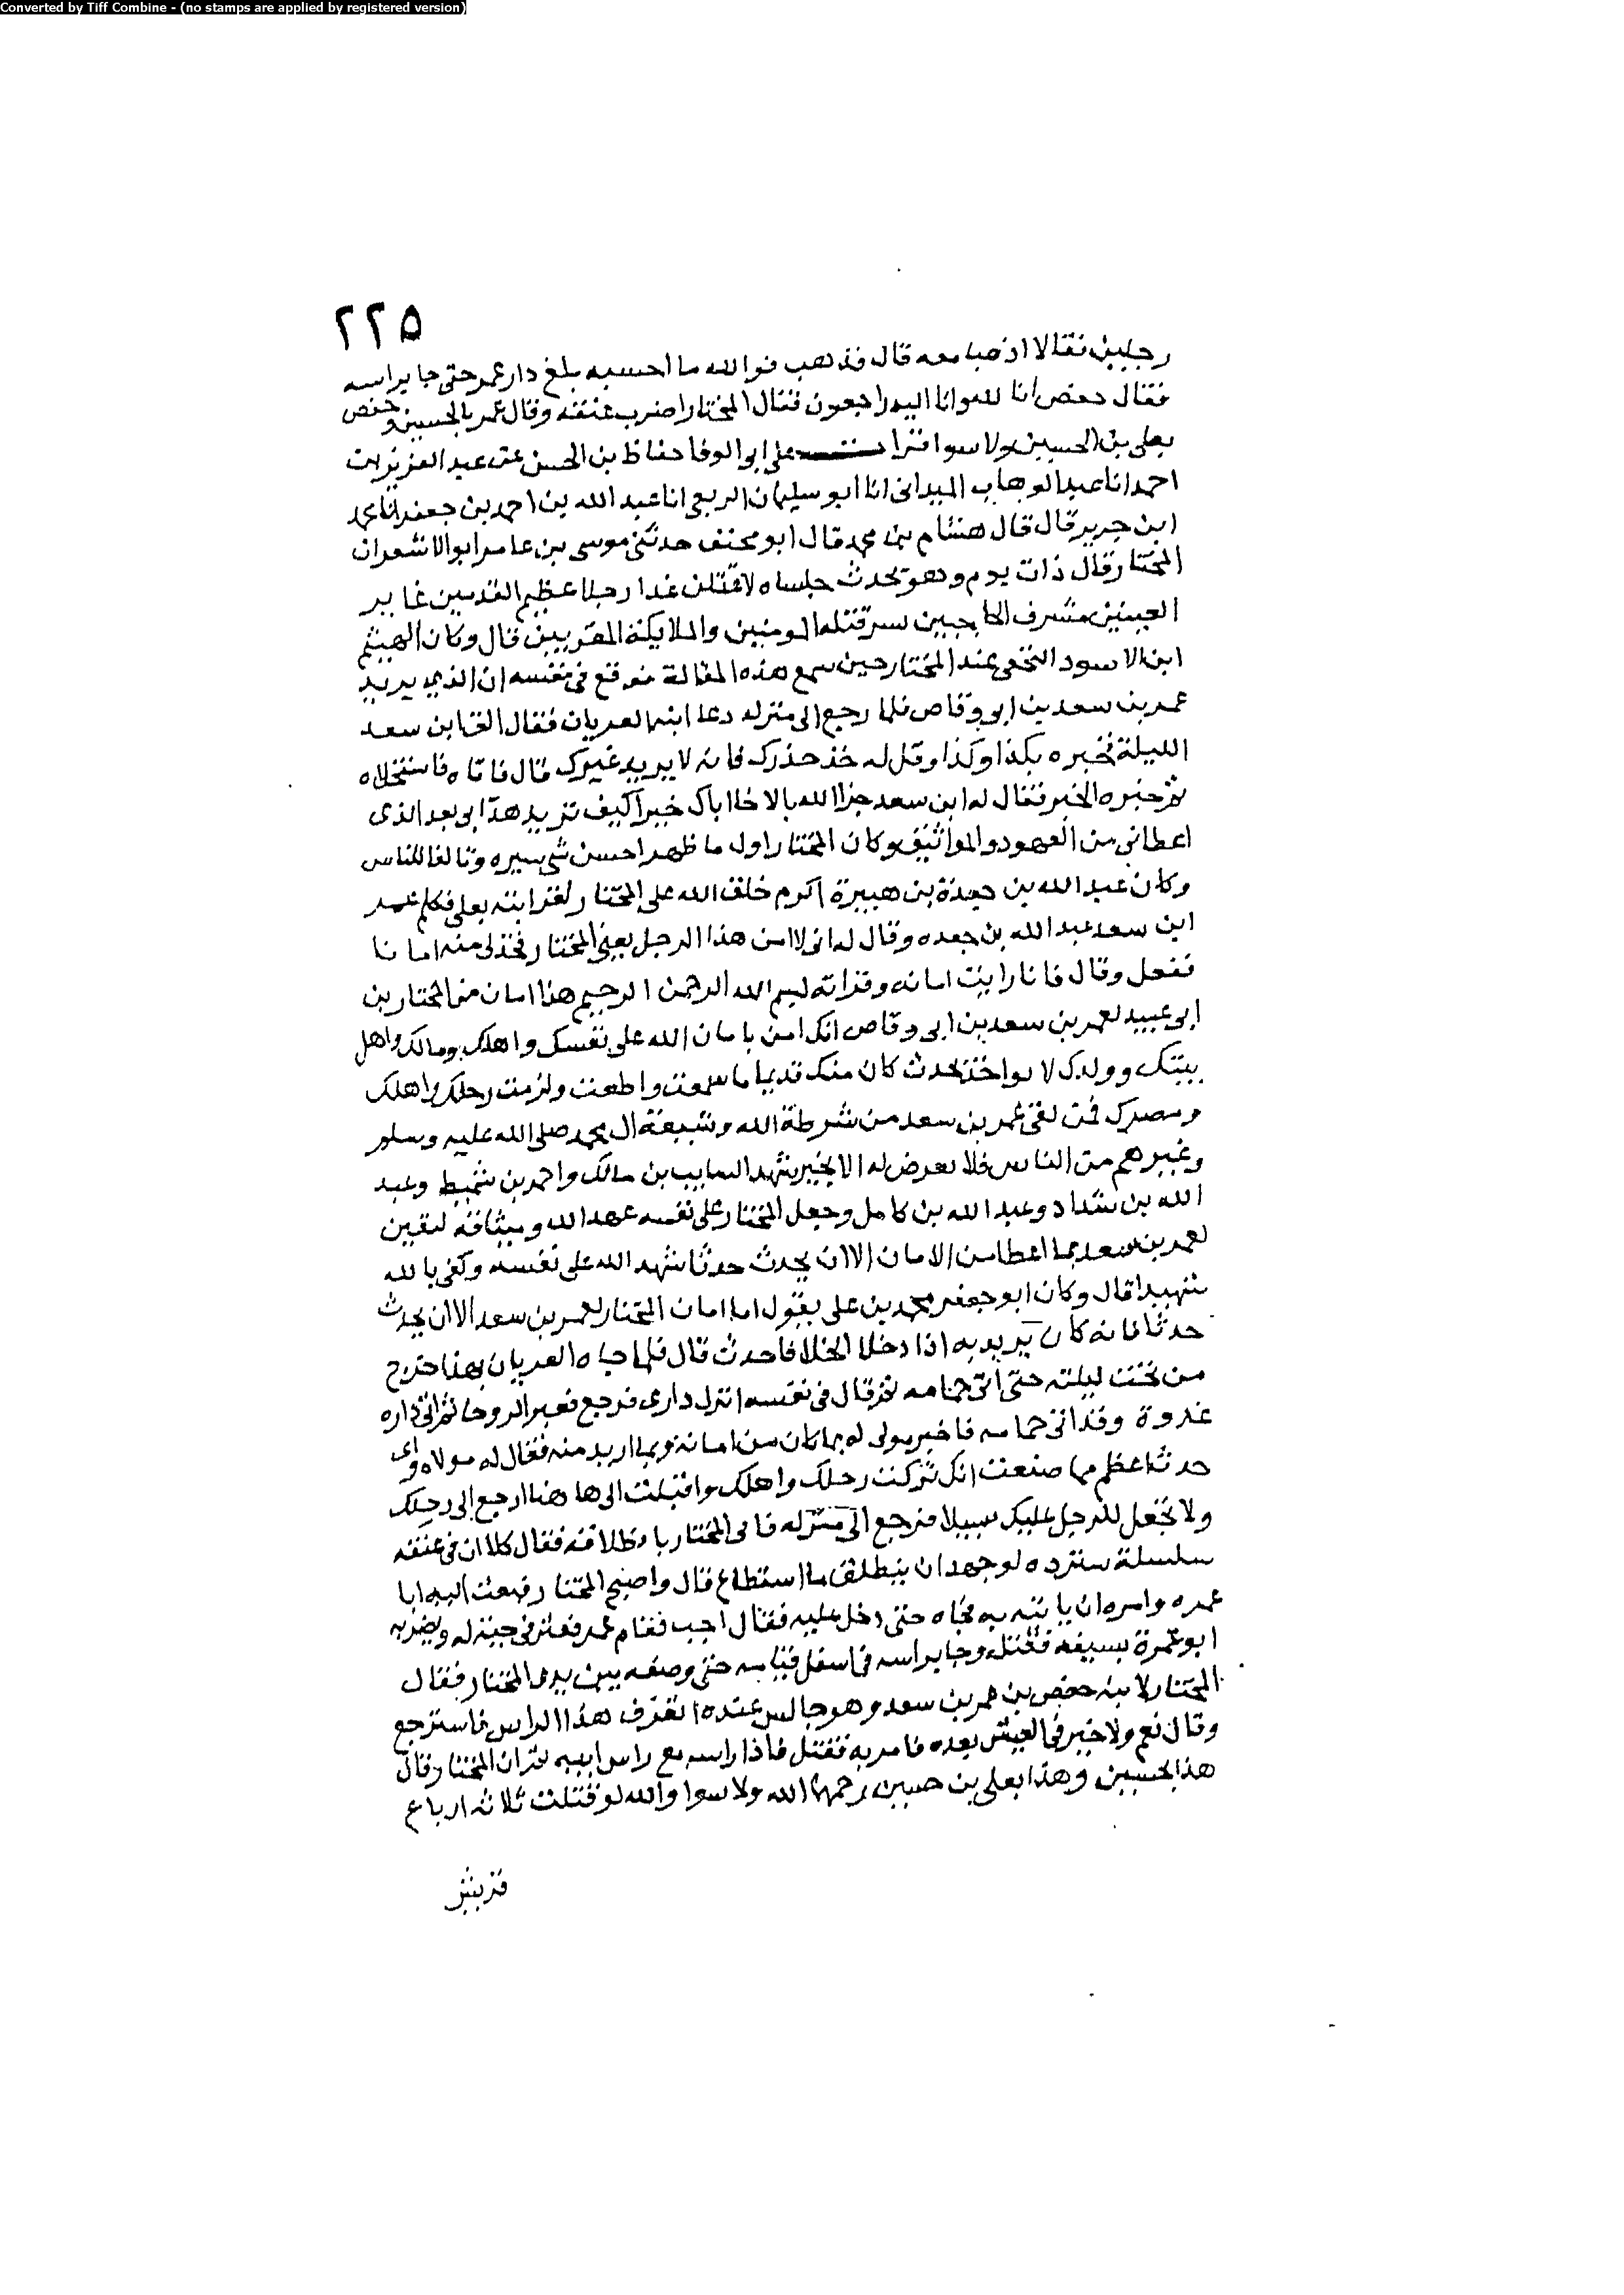 Converted by Tiff Combine - (no stamps are applied by registered version)
٢٢٥
رجلين فقالا اذهبا معه قال فذهب فوالله ما احسبه بلغ دار عمر حتى جا براسه
فقال حفص انا لله وانا اليه راجعون فقال المختار اضرب عنقه وقال عمر بالحسين وحفص
بعلي بن الحسين ولا سوا على ابو الوفا حفاظ بن الحسن عن عبد العزيز بن
احمد انا عبد الوهاب الميداني انا ابو سليمان الربعي انا عبد الله بن احمد بن جعفر انا محمد
ابن جرير قال قال هشام بن محمد قال ابو مخنف حدثني موسى بن عامر ابو الاشعر ان
المختار قال ذات يوم وهو يحدث جلساه لاقتلن غدا رجلا عظيم القدمين غاير
العينين مشرف الحاجبين يسر قتله المومنين والملايكة المقربين قال وكان الهيثم
ابن الاسود النخعي عند المختار حين سمع هذه المقالة فوقع في نفسه ان الذي يريد
عمر بن سعد بن ابي وقاص فلما رجع الى منزله دعا ابنه العريان فقال الق ابن سعد
الليلة فخبره بكذا وكذا وقل له خذ حذرك فانه لا يريد غيرك قال فاتاه فاستخلاه
ثم خبره الخبر فقال له ابن سعد جزا الله بالاخا اباك خيرا كيف يريد هذا بي بعد الذي
اعطاني من العهود والمواثيق وكان المختار اول ما ظهر احسن شي سيره وتالفا للناس
وكان عبد الله بن جعدة بن هبيرة اكرم خلق الله على المختار لقرابته بعلي فكلم عمر
ابن سعد عبد الله بن جعده وقال له اني لا امن هذا الرجل يعني المختار فخذ لي منه امانا
ففعل وقال فانا رايت امانه وقراته بسم الله الرحمن الرحيم هذا امان من المختار بن
ابي عبيد لعمر بن سعد بن ابي وقاص انك امن بامان الله على نفسك واهلك ومالك واهل
بيتك وولدك لا تواخذ بحدث كان منك قديما ما سمعت واطعت ولزمت رحلك واهلك
ومصرك فمن لقي عمر بن سعد من شرطة الله وشيعة ال محمد صلى الله عليه وسلم
وغيرهم من الناس فلا يعرض له الا بخير شهد السايب بن مالك واحمر بن شميط وعبد
الله بن شداد وعبد الله بن كامل وجعل المختار على نفسه عهد الله وميثاقه ليفين
لعمر بن سعد بما اعطا من الامان الا ان يحدث حدثا شهد الله على نفسه وكفى بالله
شهيدا قال وكان ابو جعفر محمد بن علي يقول اما امان المختار لعمر بن سعد الا ان يحدث
حدثا فانه كان يريد به اذا دخل الخلا فاحدث قال فلما جاه العريان بهذا خرج
من تحت ليلته حتى اتى حمامه ثم قال في نفسه انزل داري فرجع فعبر الروحا ثم اتى داره
غدوة وقد اتى حمامه فاخبر مولى له بما كان من امانه وبما اريد منه فقال له مولاه واى
حدث اعظم مما صنعت انك تركت رحلك واهلك واقبلت الى هاهنا ارجع الى رحلك
ولا تجعل للرجل عليك سبيلا فرجع الى منزله فاتى المختار بانطلاقه فقال كلا ان في عنقه
سلسلة سترده لو جهد ان ينطلق ما استطاع قال واصبح المختار فبعث اليه ابا
عمره وامره ان ياتيه به فجاه حتى دخل عليه فقال اجب فقام عمر فعثر في جبة له ويضربه
ابو عمرة بسيفه فقتله وجا براسه في اسفل قبايه حتى وضعه بين يدي المختار فقال
المختار لابنه حفص بن عمر بن سعد وهو جالس عنده اتعرف هذا الراس فاسترجع
وقال نعم ولا خير في العيش بعده فامر به فقتل فاذا راسه مع راس ابيه ثم ان المختار قال
هذا بحسين وهذا بعلي بن حسين رحمهما الله ولا سوا والله لو قتلت ثلاثه ارباع
قريش